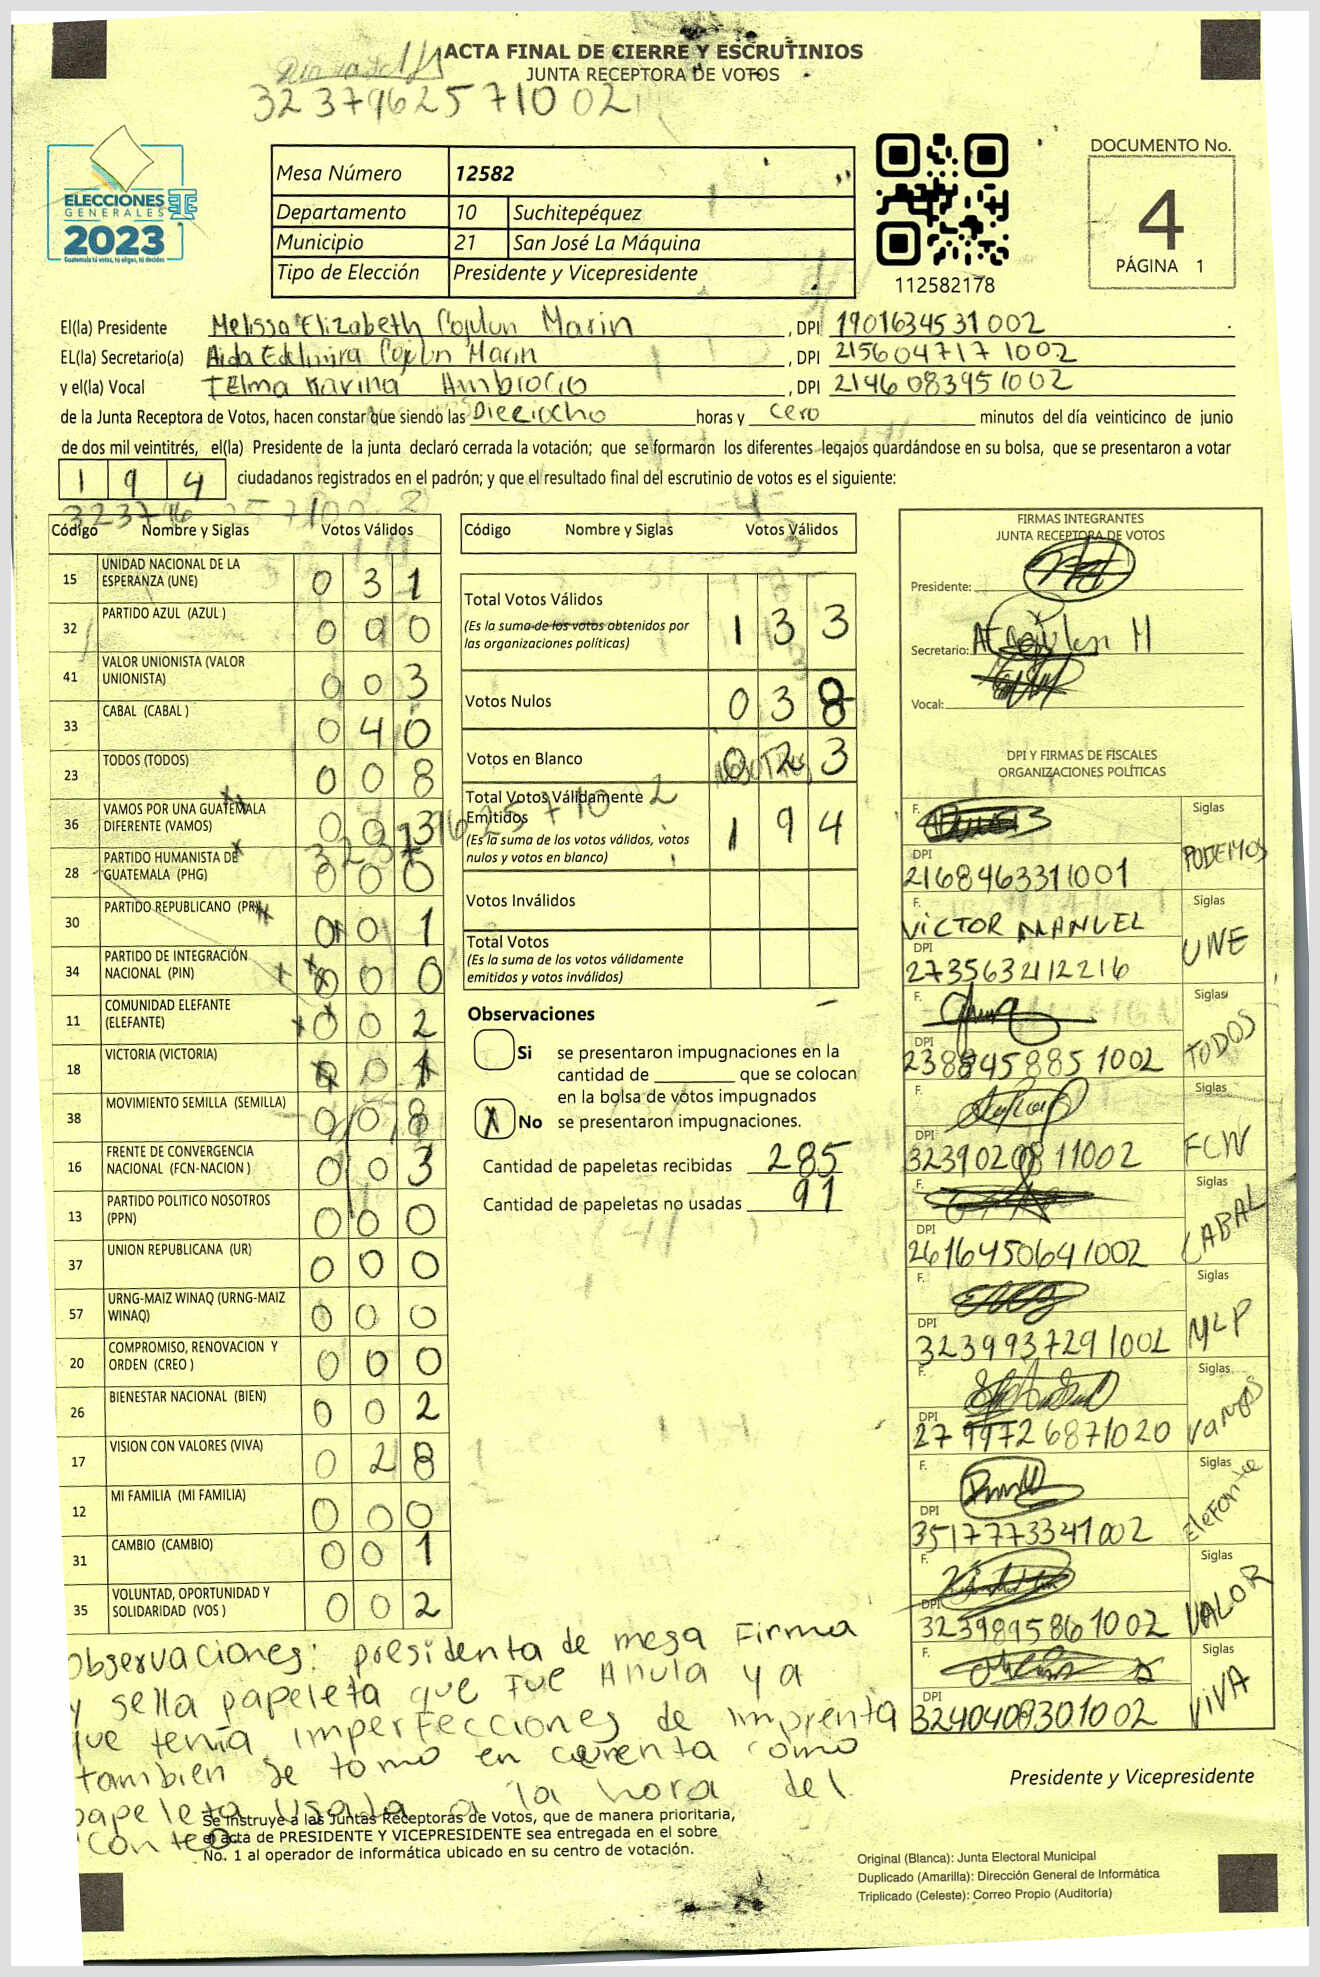 ACTA FINAL DE CIERRE Y ESCRUTINIOS
JUNTA RECEPTORA DE VOTOS
3237962571002
ELECCIONES
GENERALES
2023
Guatemala tú votas, tú eliges, tú decides
Mesa Número 12582
Departamento 10 Suchitepéquez
Municipio 21 San José La Máquina
Tipo de Elección Presidente y Vicepresidente
112582178
DOCUMENTO No.
4
PÁGINA 1
El(la) Presidente Melissa Elizabeth Cojulun Marin, DPI 1901634531002
EL(la) Secretario(a) Aida Edelmira Cojulun Marin, DPI 2156047171002
y el(la) Vocal TElma Karina Ambrocio, DPI 2146083951002
de la Junta Receptora de Votos, hacen constar que siendo las Dieciocho horas y cero minutos del día veinticinco de junio
de dos mil veintitrés, el(la) Presidente de la junta declaró cerrada la votación; que se formaron los diferentes legajos guardándose en su bolsa, que se presentaron a votar
194 ciudadanos registrados en el padrón; y que el resultado final del escrutinio de votos es el siguiente:
Código Nombre y Siglas Votos Válidos
15 UNIDAD NACIONAL DE LA ESPERANZA (UNE) 031
32 PARTIDO AZUL (AZUL ) 000
41 VALOR UNIONISTA (VALOR UNIONISTA) 003
33 CABAL (CABAL ) 040
23 TODOS (TODOS) 008
36 VAMOS POR UNA GUATEMALA DIFERENTE (VAMOS) 003
28 PARTIDO HUMANISTA DE GUATEMALA (PHG) 000
30 PARTIDO REPUBLICANO (PR) 001
34 PARTIDO DE INTEGRACIÓN NACIONAL (PIN) 000
11 COMUNIDAD ELEFANTE (ELEFANTE) 002
18 VICTORIA (VICTORIA) 001
38 MOVIMIENTO SEMILLA (SEMILLA) 008
16 FRENTE DE CONVERGENCIA NACIONAL (FCN-NACION ) 003
13 PARTIDO POLITICO NOSOTROS (PPN) 000
37 UNION REPUBLICANA (UR) 000
57 URNG-MAIZ WINAQ (URNG-MAIZ WINAQ) 000
20 COMPROMISO, RENOVACION Y ORDEN (CREO ) 000
26 BIENESTAR NACIONAL (BIEN) 002
17 VISION CON VALORES (VIVA) 028
12 MI FAMILIA (MI FAMILIA) 000
31 CAMBIO (CAMBIO) 001
35 VOLUNTAD, OPORTUNIDAD Y SOLIDARIDAD (VOS ) 002
Código Nombre y Siglas Votos Válidos
Total Votos Válidos 133
(Es la suma de los votos obtenidos por
las organizaciones políticas)
Votos Nulos 038
Votos en Blanco 023
Total Votos Válidamente
Emitidos 194
(Es la suma de los votos válidos, votos
nulos y votos en blanco)
Votos Inválidos
Total Votos
(Es la suma de los votos válidamente
emitidos y votos inválidos)
Observaciones
Si se presentaron impugnaciones en la
cantidad de ________ que se colocan
en la bolsa de votos impugnados
X No se presentaron impugnaciones.
Cantidad de papeletas recibidas 285
Cantidad de papeletas no usadas 91
FIRMAS INTEGRANTES
JUNTA RECEPTORA DE VOTOS
Presidente:
Secretario:
Vocal:
DPI Y FIRMAS DE FISCALES
ORGANIZACIONES POLÍTICAS
F. Siglas
DPI 2168463311001 PODEMOS
F. VICTOR MANUEL Siglas
DPI 2735632112216 UNE
F. Siglas
DPI 2388945885 1002 TODOS
F. Siglas
DPI 3239020811002 FCN
F. Siglas
DPI 2616450641002 CABAL
F. Siglas
DPI 3239937291002 MLP
F. Siglas
DPI 2799726871020 VAMOS
F. Siglas
DPI 3517773341002 EleFante
F. Siglas
DPI 3239895861002 VALOR
F. Siglas
DPI 3240409301002 VIVA
Observaciones: presidenta de mesa Firma
y sella papeleta que Fue Anula ya
que tenía imperfecciones de imprenta
tambien se tomo en cuenta como
papeleta usada a la hora del
Conteo
Presidente y Vicepresidente
Se instruye a las Juntas Receptoras de Votos, que de manera prioritaria,
el acta de PRESIDENTE Y VICEPRESIDENTE sea entregada en el sobre
No. 1 al operador de informática ubicado en su centro de votación.
Original (Blanca): Junta Electoral Municipal
Duplicado (Amarilla): Dirección General de Informática
Triplicado (Celeste): Correo Propio (Auditoría)